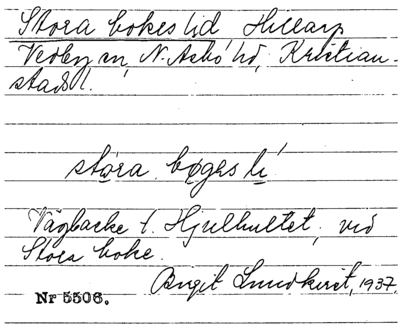 Stora bokes lid Hillarp
Verby sn, N. Åsbo hd, Kristian-
stads l.
stora bøges li
Vägbacke t. Hjulhultet, vid
Stora boke.
Birgit Lundkvist, 1937.
Nr 5506.